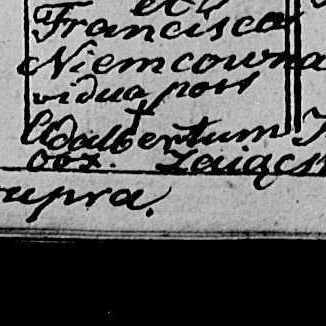 et
Francisca
Niemcowna
vidua post
†
Adalbertum
Zaiącs
supra.